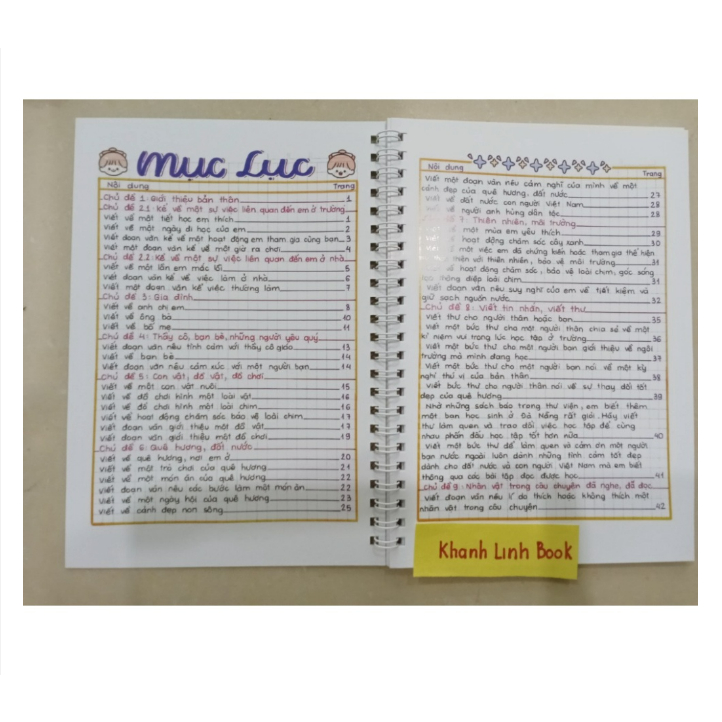 Mục Lục
Nội dung Trang
Chủ đề 1: Giới thiệu bản thân 1
Chủ đề 2.1: Kể về một sự việc liên quan đến em ở trường
Viết về một tiết học em thích 1
Viết về một ngày đi học của em 2
Viết đoạn văn kể về một hoạt động em tham gia cùng bạn 3
Viết một đoạn văn kể về một giờ ra chơi 4
Chủ đề 2.2: Kể về một sự việc liên quan đến em ở nhà
Viết về một lần em mắc lỗi 5
Viết đoạn văn kể về việc làm ở nhà 6
Viết một đoạn văn kể việc thường làm 7
Chủ đề 3: Gia đình
Viết về anh chị em 8
Viết về ông bà 10
Viết về bố mẹ 11
Chủ đề 4: Thầy cô, bạn bè, những người yêu quý
Viết đoạn văn nêu tình cảm với thầy cô giáo 13
Viết về bạn bè 14
Viết đoạn văn nêu cảm xúc với một người bạn 14
Chủ đề 5: Con vật, đồ vật, đồ chơi
Viết về một con vật nuôi 15
Viết về đồ chơi hình một loài vật 16
Viết về đồ chơi hình một loài chim 16
Viết về hoạt động chăm sóc bảo vệ loài chim 17
Viết đoạn văn giới thiệu một đồ vật 17
Viết đoạn văn giới thiệu một đồ chơi 19
Chủ đề 6: Quê hương, đất nước
Viết về quê hương, nơi em ở 20
Viết về một trò chơi của quê hương 21
Viết về một món ăn của quê hương 22
Viết đoạn văn nêu các bước làm một món ăn 22
Viết về một ngày hội của quê hương 23
Viết về cảnh đẹp non sông 25
Nội dung Trang
Viết một đoạn văn nêu cảm nghĩ của mình về một
cảnh đẹp của quê hương, đất nước 27
về đất nước con người Việt Nam 28
về người anh hùng dân tộc 28
7: Thiên nhiên, môi trường
về một mùa em yêu thích 29
hoạt động chăm sóc cây xanh 30
một việc em đã chứng kiến hoặc tham gia thể hiện
thiện với thiên nhiên, bảo vệ môi trường 31
về hoạt động chăm sóc, bảo vệ loài chim, góc sáng
thông điệp loài chim 31
đoạn văn nêu suy nghĩ của em về tiết kiệm và
giữ sạch nguồn nước 32
Chủ đề 8: Viết tin nhắn, viết thư
Viết thư cho người thân hoặc bạn 35
Viết một bức thư cho một người thân chia sẻ về một
kỉ niệm vui trong lúc học tập ở trường 36
Viết một bức thư cho một người bạn giới thiệu về ngôi
trường mà mình đang học 37
Viết một bức thư cho một người bạn nói về một kỳ
nghỉ thú vị của bản thân 38
Viết bức thư cho người thân nói về sự thay đổi tốt
đẹp của quê hương 39
Nhờ những sách báo trong thư viện, em biết thêm
một bạn học sinh ở Đà Nẵng rất giỏi. Hãy viết
thư làm quen và trao đổi việc học tập để cùng
nhau phấn đấu học tập tốt hơn nữa 40
Viết một bức thư để làm quen và cảm ơn một người
bạn nước ngoài luôn dành những tình cảm tốt đẹp
dành cho đất nước và con người Việt Nam mà em biết
thông qua các bài tập đọc được học 41
Chủ đề 9: Nhân vật trong câu chuyện đã nghe, đã đọc
Viết đoạn văn nêu lí do thích hoặc không thích một
nhân vật trong câu chuyện 42
Khanh Linh Book